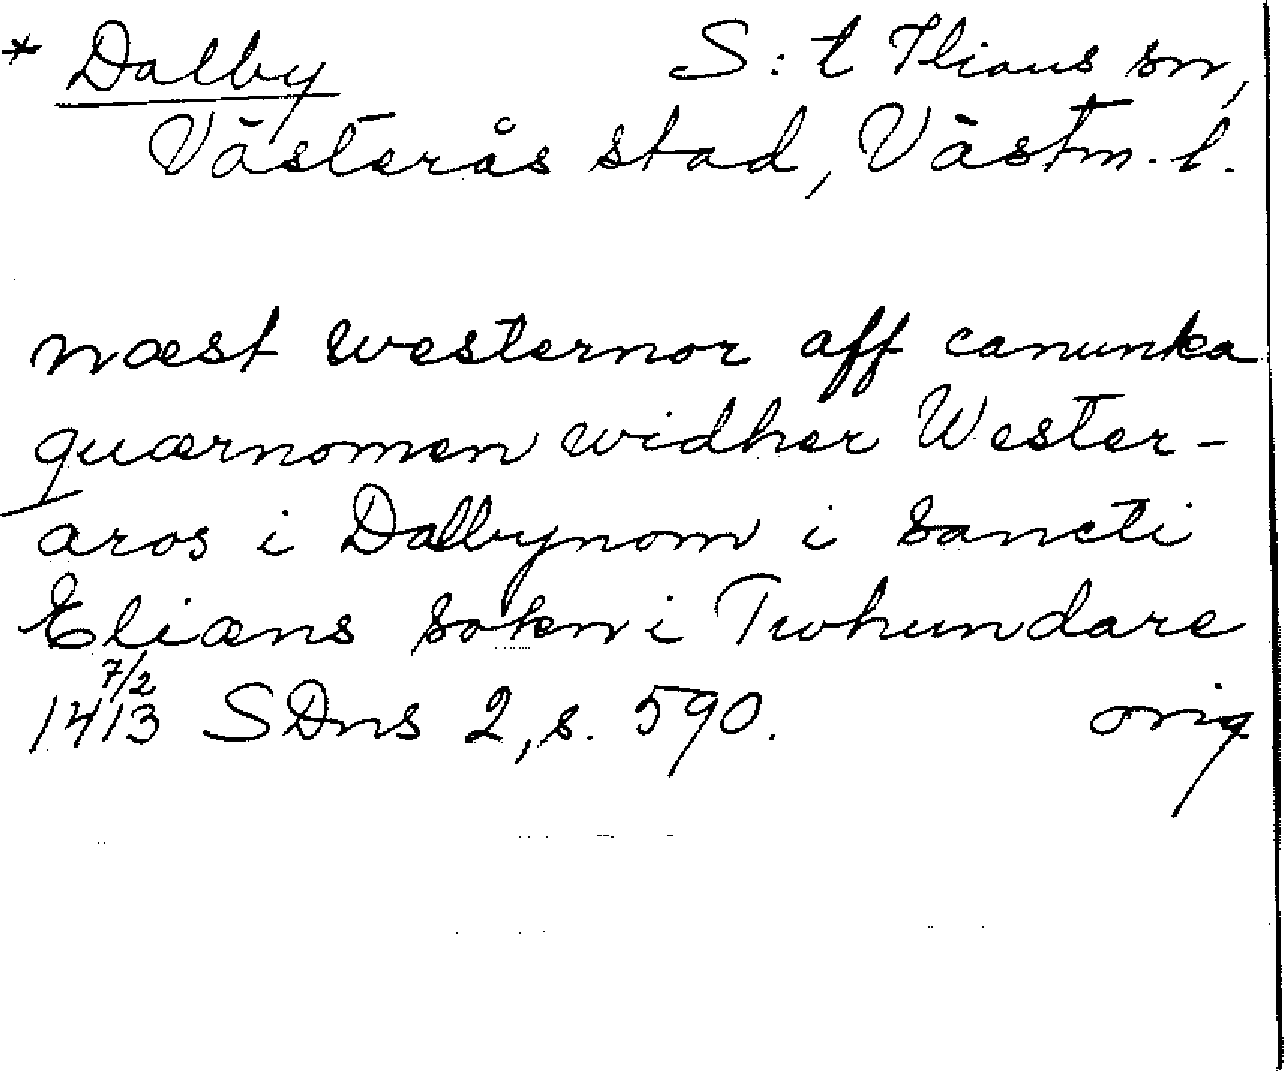 * Dalby S:t Ilians sn,
Västerås stad, Västm. l.
næst westernor aff canunka
quærnomen widher Wester-
aros i Dalbynom i sancti
Eliæns sokn i Twhundare
7/2
1413 SDns 2, s. 590. orig